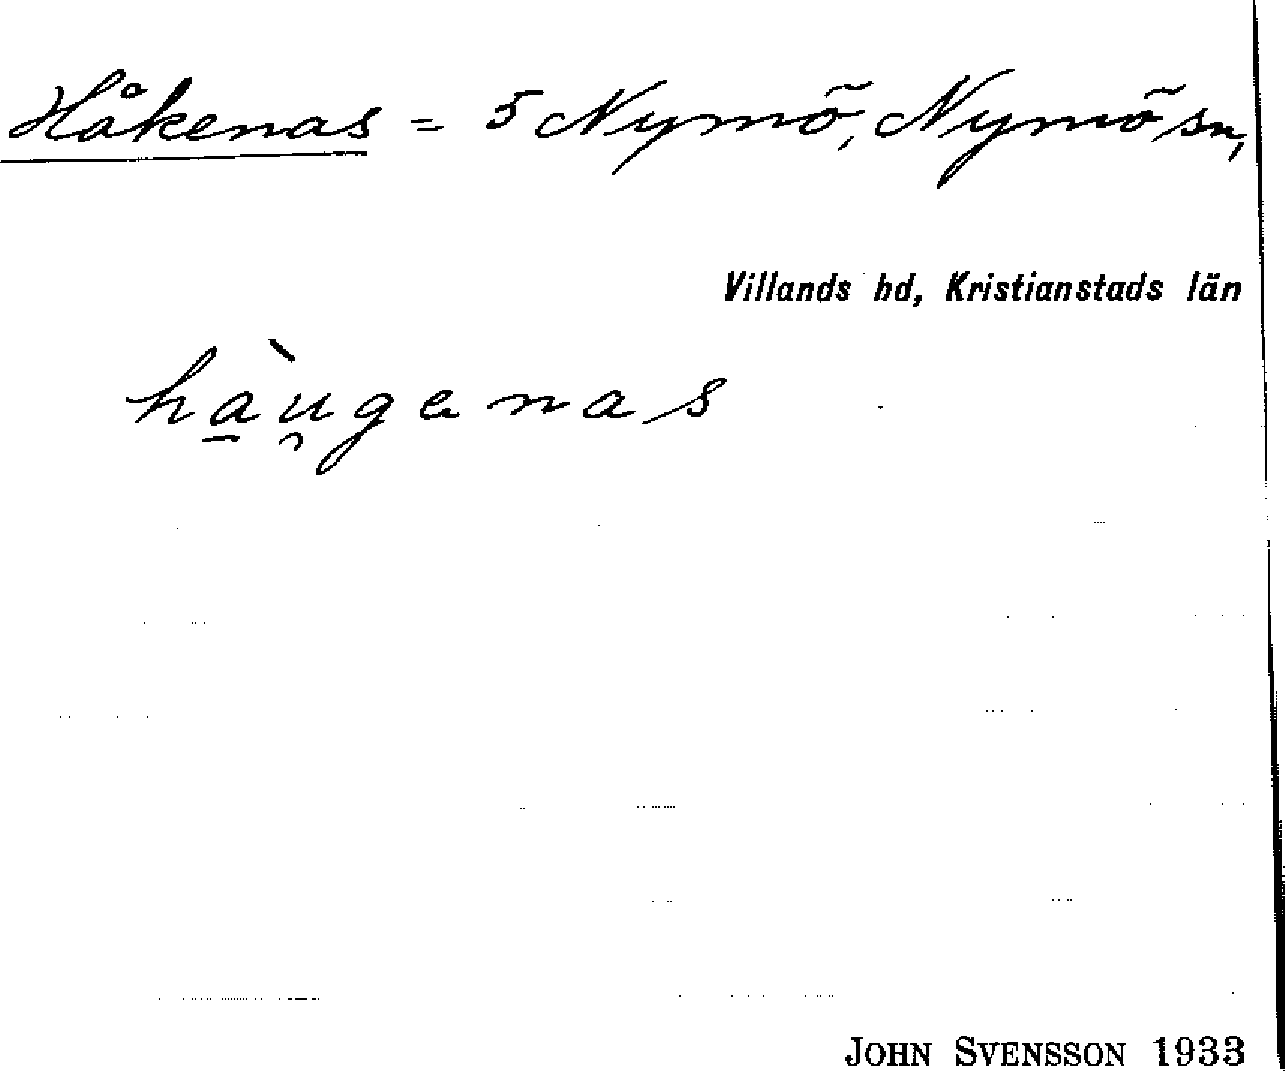 Håkenas = 5 Nymö, Nymö sn,
Villands hd, Kristianstads län
hà̠u̯genas
JOHN SVENSSON 1933